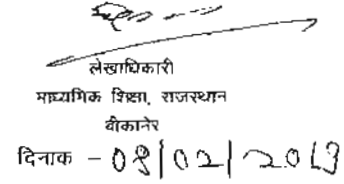 लेखाधिकारी
माध्यमिक शिक्षा, राजस्थान
बीकानेर
दिनाक - 08/02/2013